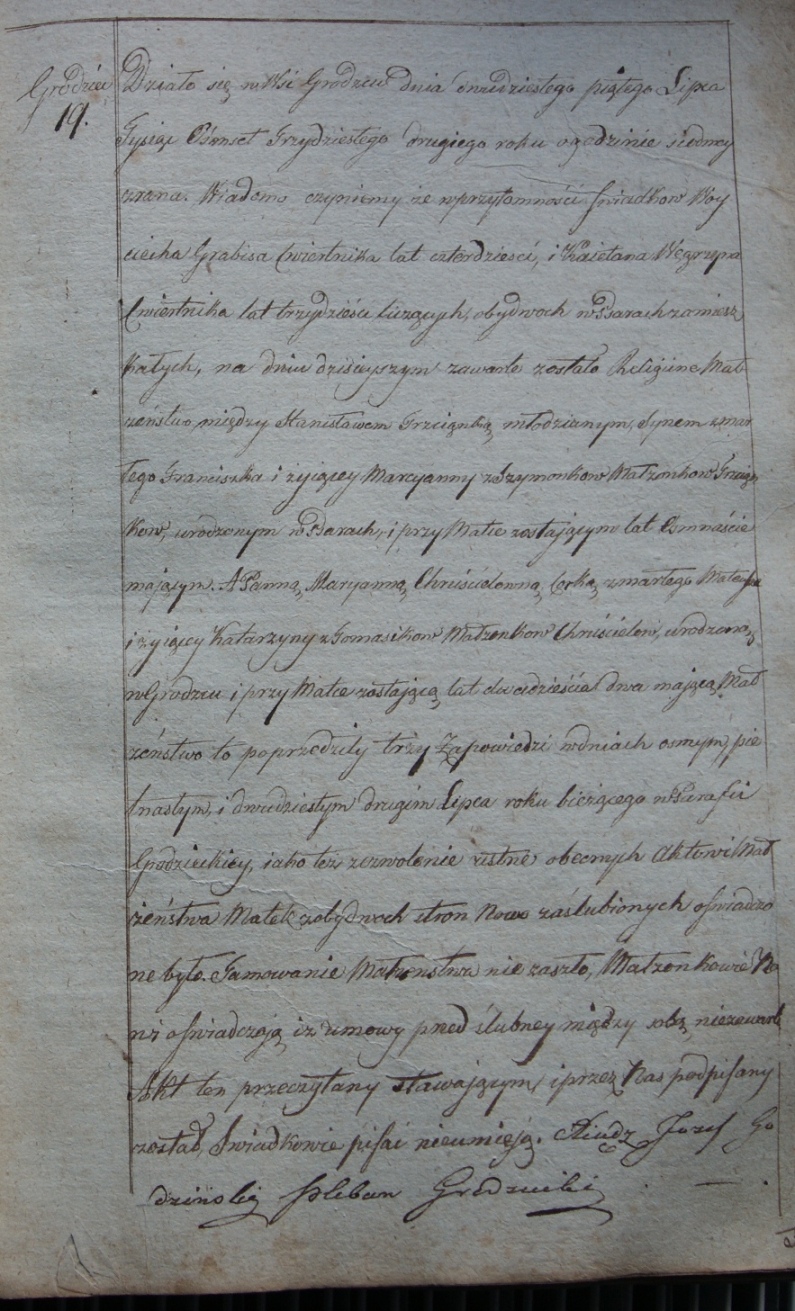 Grodziec
19.
Działo się w Wsi Grodźcu dnia dwudziestego piątego Lipca
Tysiąc Ośmset Trzydziestego drugiego roku o godzinie siódmey
zrana. Wiadomo czyniemy że w przytomności Swiadkow Woy
ciecha Grabisa Cwiertnika lat czterdzieści, i Kaietana Węgrzyna
Cwiertnika lat trzydzieści liczących, obydwoch w Psarach zamiesz
kałych, na dniu dzisieyszym zawarte zostało Religijne Mał
żeństwo między Stanisławem Trzcionką, młodzianym, Synem zmar
łego Franciszka i żyiącey Maryanny z Szymonkow Małżonkow Trzcion
kow, urodzonym w Psarach, i przy Matce zostającym lat Osmnaście
mającym. A Panną Maryanną Chruścielowną, Corką zmarłego Mateusza
i żyiącey Katarzyny z Tomasikow Małżonkow Chruścielow, urodzoną
w Grodzcu i przy Matce zostającą, lat dwadzieścia dwa mającą, Mał
żeństwo to poprzedziły trzy Zapowiedzi w dniach osmym, pię
tnastym, i dwudziestym drugim Lipca roku bieżącego w Parafii
Grodzieckiey, iako też zezwolenie ustne obecnych Aktowi Mał
żeństwa Matek z obydwoch stron Nowo zaślubionych oświadczo
ne było. Tamowanie Małżeństwa nie zaszło, Małżonkowie No
wi oświadczają iż umowy przed ślubney między sobą niezawarli
Akt ten przeczytany stawającym, i przez Nas podpisany
został, Swiadkowie pisać nieumieją. Xiądz Jozef Go
dzinski Pleban Grodziecki